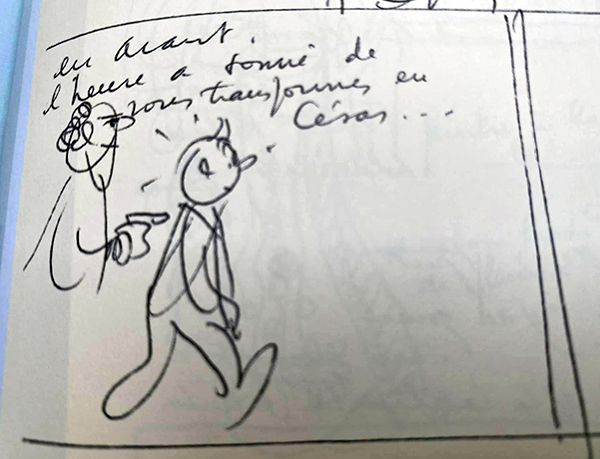 en avant.
l'heure a sonné de
vous transformer en
César...